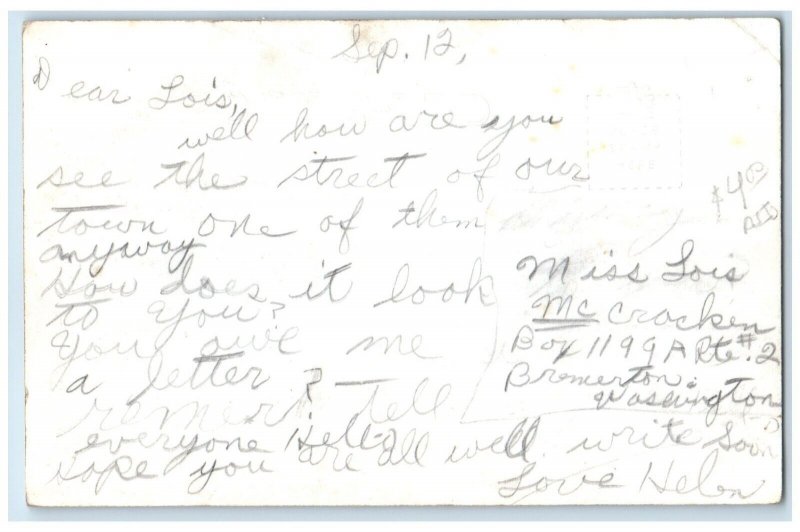 Sep. 12,
Dear Lois,
well how are you
see the street of our
town one of them
anyway
How does it look
to you?
You owe me
a letter?
tell
everyone Hello
Hope you are all well. write soon
Love Helen
Miss Lois
McCracken
Box 1199A Rte. #2
Bremerton.
Washington
$4.00